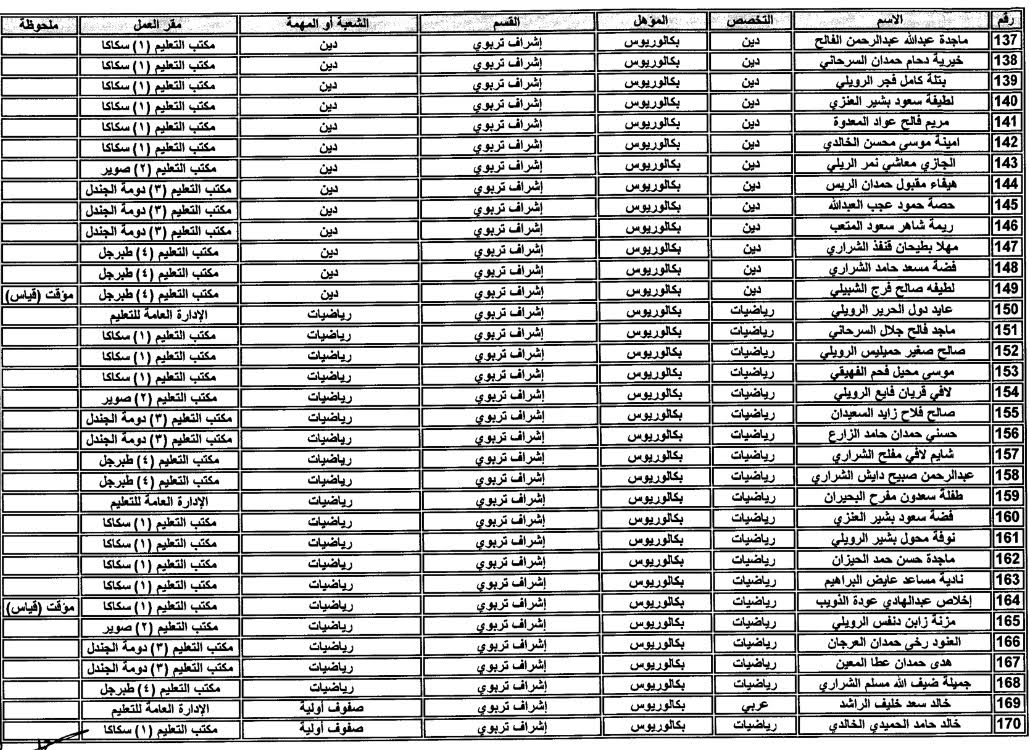 رقم الاسم التخصص المؤهل القسم الشعبة أو المهمة مقر العمل ملحوظة
137 ماجدة عبدالله عبدالرحمن الفالح دين بكالوريوس إشراف تربوي دين مكتب التعليم (١) سكاكا
138 خيرية دحام حمدان السرحاني دين بكالوريوس إشراف تربوي دين مكتب التعليم (١) سكاكا
139 بتلة كامل فجر الرويلي دين بكالوريوس إشراف تربوي دين مكتب التعليم (١) سكاكا
140 لطيفة سعود بشير العنزي دين بكالوريوس إشراف تربوي دين مكتب التعليم (١) سكاكا
141 مريم فالح عواد المعدوة دين بكالوريوس إشراف تربوي دين مكتب التعليم (١) سكاكا
142 امينة موسي محسن الخالدي دين بكالوريوس إشراف تربوي دين مكتب التعليم (١) سكاكا
143 الجازي معاشي نمر الريلي دين بكالوريوس إشراف تربوي دين مكتب التعليم (٢) صوير
144 هيفاء مقبول حمدان الريس دين بكالوريوس إشراف تربوي دين مكتب التعليم (٣) دومة الجندل
145 حصة حمود عجب العبدالله دين بكالوريوس إشراف تربوي دين مكتب التعليم (٣) دومة الجندل
146 ريمة شاهر سعود المتعب دين بكالوريوس إشراف تربوي دين مكتب التعليم (٣) دومة الجندل
147 مهلا بطيحان قنفذ الشراري دين بكالوريوس إشراف تربوي دين مكتب التعليم (٤) طبرجل
148 فضة مسعد حامد الشراري دين بكالوريوس إشراف تربوي دين مكتب التعليم (٤) طبرجل
149 لطيفه صالح فرج الشبيلي دين بكالوريوس إشراف تربوي دين مكتب التعليم (٤) طبرجل مؤقت (قياس)
150 عايد دول الحرير الرويلي رياضيات بكالوريوس إشراف تربوي رياضيات الإدارة العامة للتعليم
151 ماجد فالح جلال السرحاني رياضيات بكالوريوس إشراف تربوي رياضيات مكتب التعليم (١) سكاكا
152 صالح صغير حميليس الرويلي رياضيات بكالوريوس إشراف تربوي رياضيات مكتب التعليم (١) سكاكا
153 موسي محيل فحم الفهيقي رياضيات بكالوريوس إشراف تربوي رياضيات مكتب التعليم (١) سكاكا
154 لافي قريان فايع الرويلي رياضيات بكالوريوس إشراف تربوي رياضيات مكتب التعليم (٢) صوير
155 صالح فلاح زايد السعيدان رياضيات بكالوريوس إشراف تربوي رياضيات مكتب التعليم (٣) دومة الجندل
156 حسني حمدان حامد الزارع رياضيات بكالوريوس إشراف تربوي رياضيات مكتب التعليم (٣) دومة الجندل
157 شايم لافي مفلح الشراري رياضيات بكالوريوس إشراف تربوي رياضيات مكتب التعليم (٤) طبرجل
158 عبدالرحمن صبيح دايش الشراري رياضيات بكالوريوس إشراف تربوي رياضيات مكتب التعليم (٤) طبرجل
159 طفلة سعدون مفرح البحيران رياضيات بكالوريوس إشراف تربوي رياضيات الإدارة العامة للتعليم
160 فضة سعود بشير العنزي رياضيات بكالوريوس إشراف تربوي رياضيات مكتب التعليم (١) سكاكا
161 نوفة محول بشير الرويلي رياضيات بكالوريوس إشراف تربوي رياضيات مكتب التعليم (١) سكاكا
162 ماجدة حسن حمد الحيزان رياضيات بكالوريوس إشراف تربوي رياضيات مكتب التعليم (١) سكاكا
163 نادية مساعد عايض البراهيم رياضيات بكالوريوس إشراف تربوي رياضيات مكتب التعليم (١) سكاكا
164 إخلاص عبدالهادي عودة الذويب رياضيات بكالوريوس إشراف تربوي رياضيات مكتب التعليم (١) سكاكا مؤقت (قياس)
165 مزنة زابن دنفس الرويلي رياضيات بكالوريوس إشراف تربوي رياضيات مكتب التعليم (٢) صوير
166 العنود رخي حمدان العرجان رياضيات بكالوريوس إشراف تربوي رياضيات مكتب التعليم (٣) دومة الجندل
167 هدى حمدان عطا المعين رياضيات بكالوريوس إشراف تربوي رياضيات مكتب التعليم (٣) دومة الجندل
168 جميلة ضيف الله مسلم الشراري رياضيات بكالوريوس إشراف تربوي رياضيات مكتب التعليم (٤) طبرجل
169 خالد سعد خليف الراشد عربي بكالوريوس إشراف تربوي صفوف أولية الإدارة العامة للتعليم
170 خالد حامد الحميدي الخالدي رياضيات بكالوريوس إشراف تربوي صفوف أولية مكتب التعليم (١) سكاكا